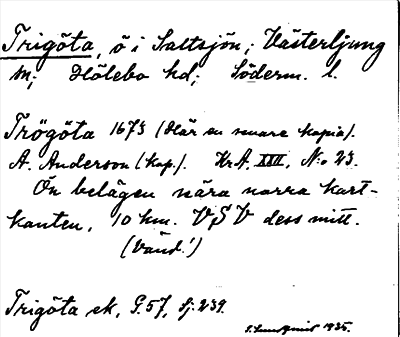 Trigöta, ö i Saltsjön; Västerljung
sn; Hölebo hd; Söderm. l.
Trögöta 1673 (Här en senare kopia).
A. Anderson (kop.). KrA. XXII, N:o 23.
Ön belägen nära norra kart-
kanten, 10 km. VSV dess mitt.
(Vänd!)
Trigöta ek, G. 57, sj: 239.
1935.